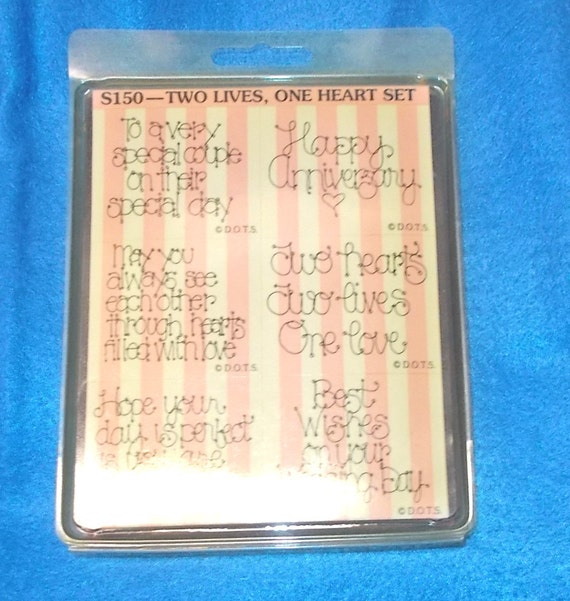 S150—TWO LIVES, ONE HEART SET
To a very
special couple
on their
special day
© D.O.T.S.
Happy
Anniversary
© D.O.T.S.
May you
always see
each other
through hearts
filled with love
© D.O.T.S.
Two hearts
Two lives
One love
© D.O.T.S.
Hope your
day is perfect
Best
Wishes
on your
Day
© D.O.T.S.